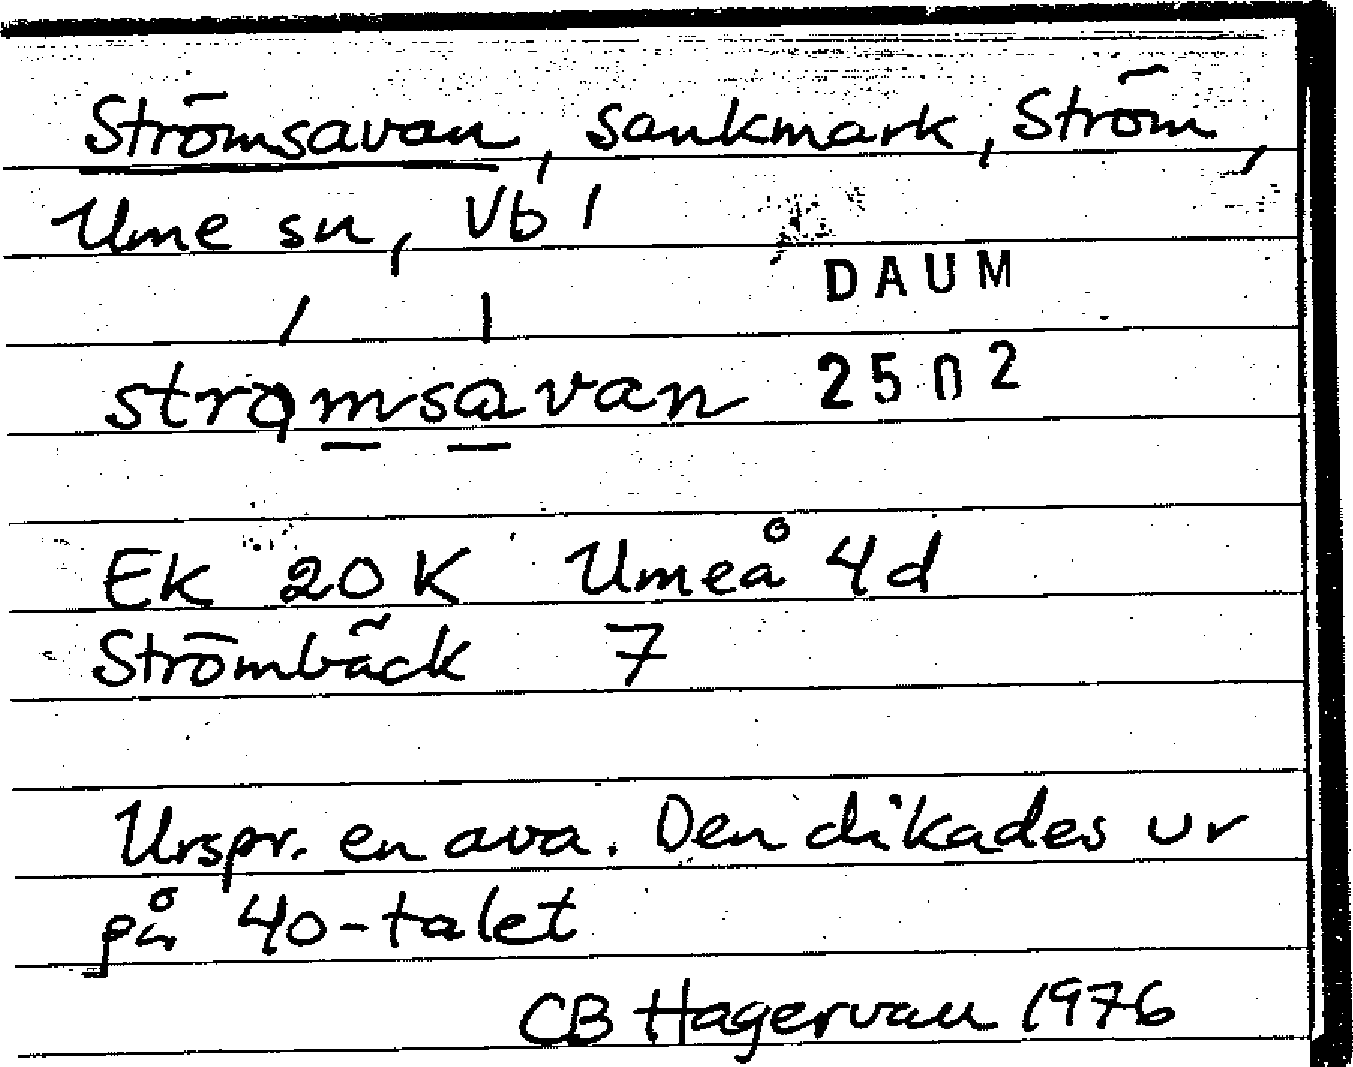 Strömsavan, sankmark, Ström,
Ume sn, Vb
DAUM
strǫmsavan 2502
Ek 20 K Umeå 4d
Strömbäck 7
Urspr. en ava. Den dikades ur
på 40-talet
CB Hagervall 1976